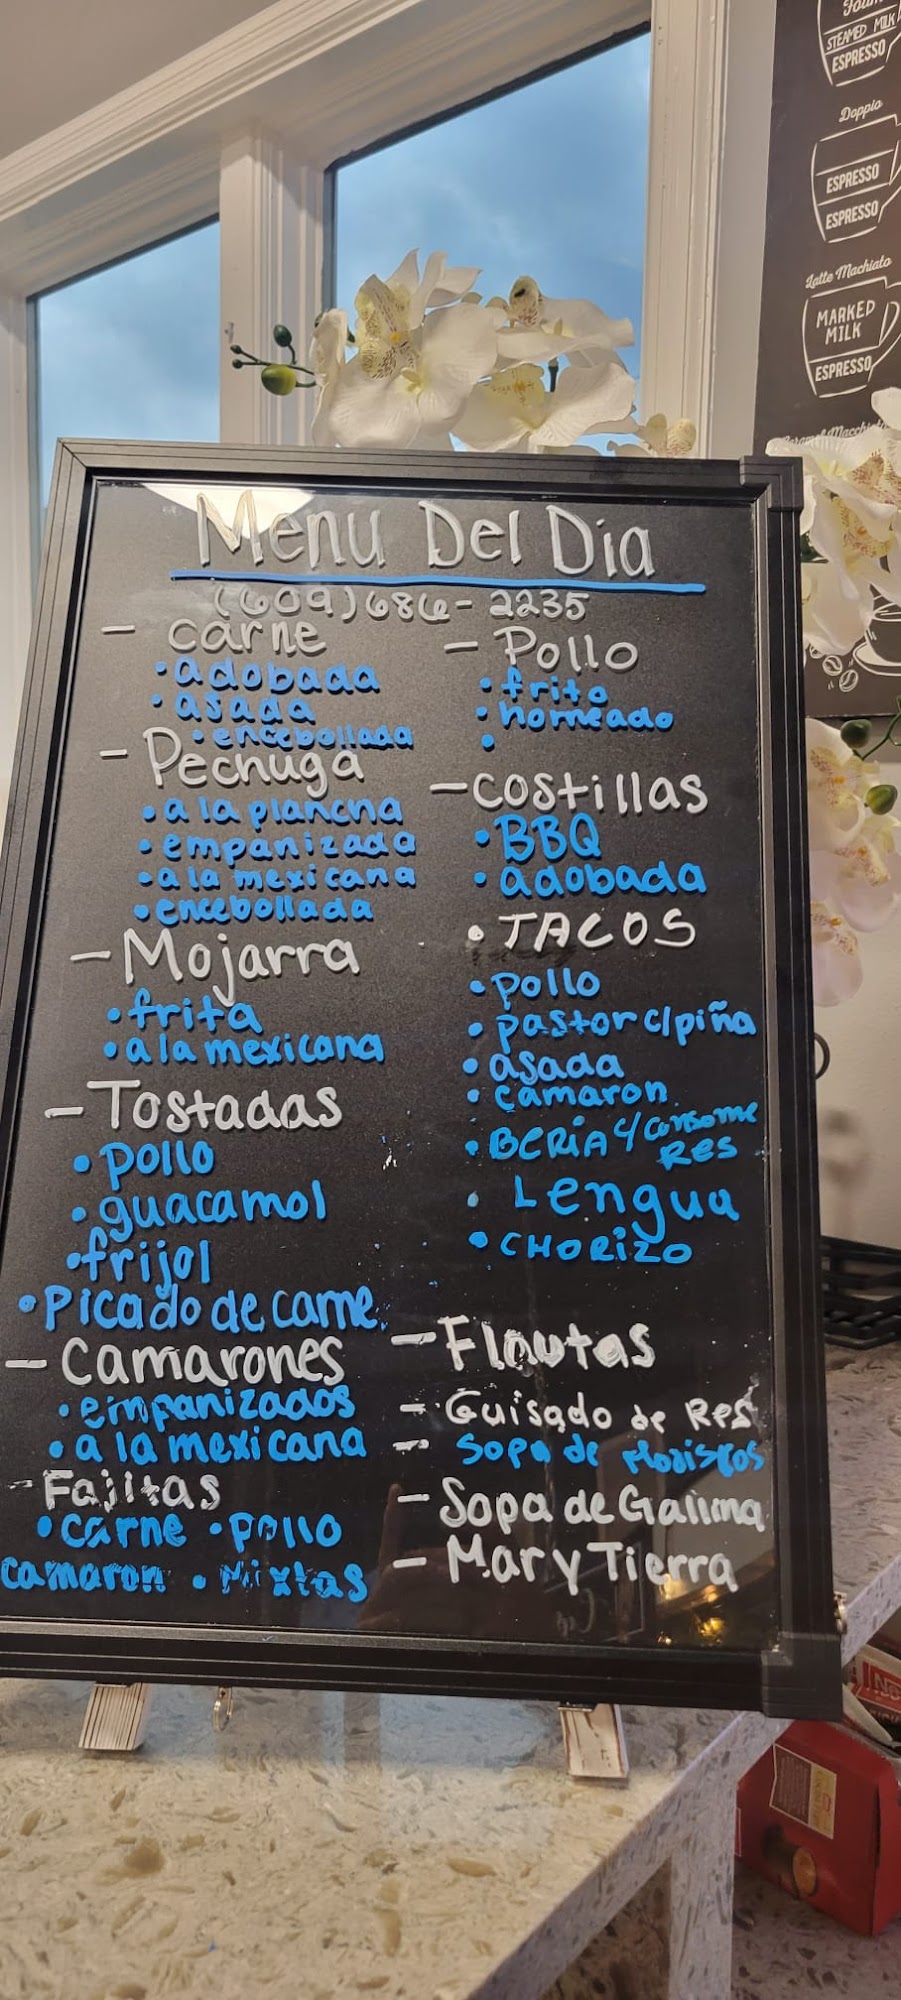 Menu Del Dia
(609)686-2235
- carne
• adobada
• asada
• encebollada
- Pechuga
• a la plancha
• empanizada
• a la mexicana
• encebollada
- Mojarra
• frita
• a la mexicana
- Tostadas
• pollo
• guacamol
• frijol
• Picado de carne
- Camarones
• empanizados
• a la mexicana
- Fajitas
• carne • pollo
camaron • Mixtas
- Pollo
• frito
• horneado
•
- costillas
• BBQ
• adobada
• TACOS
• pollo
• pastor c/piña
• asada
• camaron
• BERIA c/consome
RES
• Lengua
• CHORIZO
- Flautas
- Guisado de Res
- Sopa de Mariscos
- Sopa de Gallina
- Mar y Tierra
STEAMED MILK
ESPRESSO
Doppio
ESPRESSO
ESPRESSO
Latte Machiato
MARKED
MILK
ESPRESSO